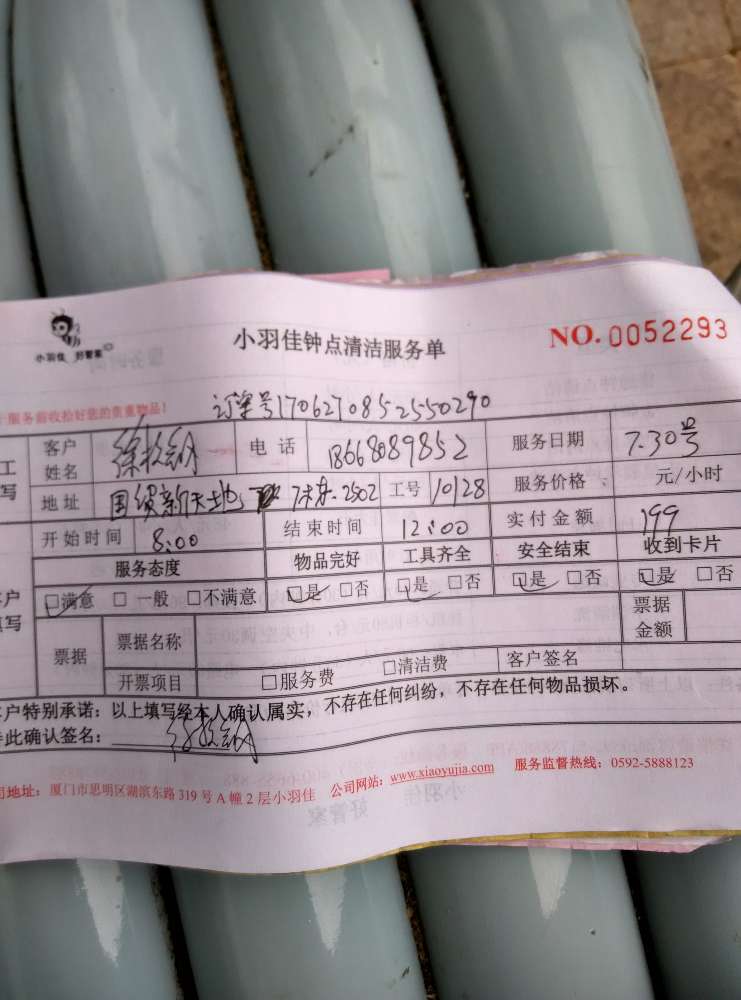 小羽佳 好管家
小羽佳钟点清洁服务单
NO. 0052293
服务前收捡好您的贵重物品!
订单号17062708525550290
客户姓名 徐 电话 18668089852 服务日期 7.30号
地址 国贸新天地 7栋 2502 工号 10128 服务价格 元/小时
开始时间 8:00 结束时间 12:00 实付金额 199
服务态度 物品完好 工具齐全 安全结束 收到卡片
□满意 □一般 □不满意 □是 □否 □是 □否 □是 □否 □是 □否
票据 票据名称 票据金额
开票项目 □服务费 □清洁费 客户签名
户特别承诺：以上填写经本人确认属实，不存在任何纠纷，不存在任何物品损坏。
此确认签名：
司地址：厦门市思明区湖滨东路319号A幢2层小羽佳 公司网站：www.xiaoyujia.com 服务监督热线：0592-5888123